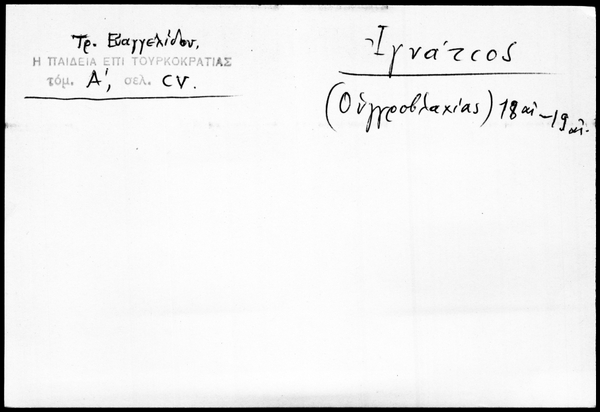 Τρ. Ευαγγελίδου,
Η ΠΑΙΔΕΙΑ ΕΠΙ ΤΟΥΡΚΟΚΡΑΤΙΑΣ
τόμ. Α', σελ. CV.
Ἰγνάτιος
(Οὐγγροβλαχίας) 18 αἰ - 19 αἰ.